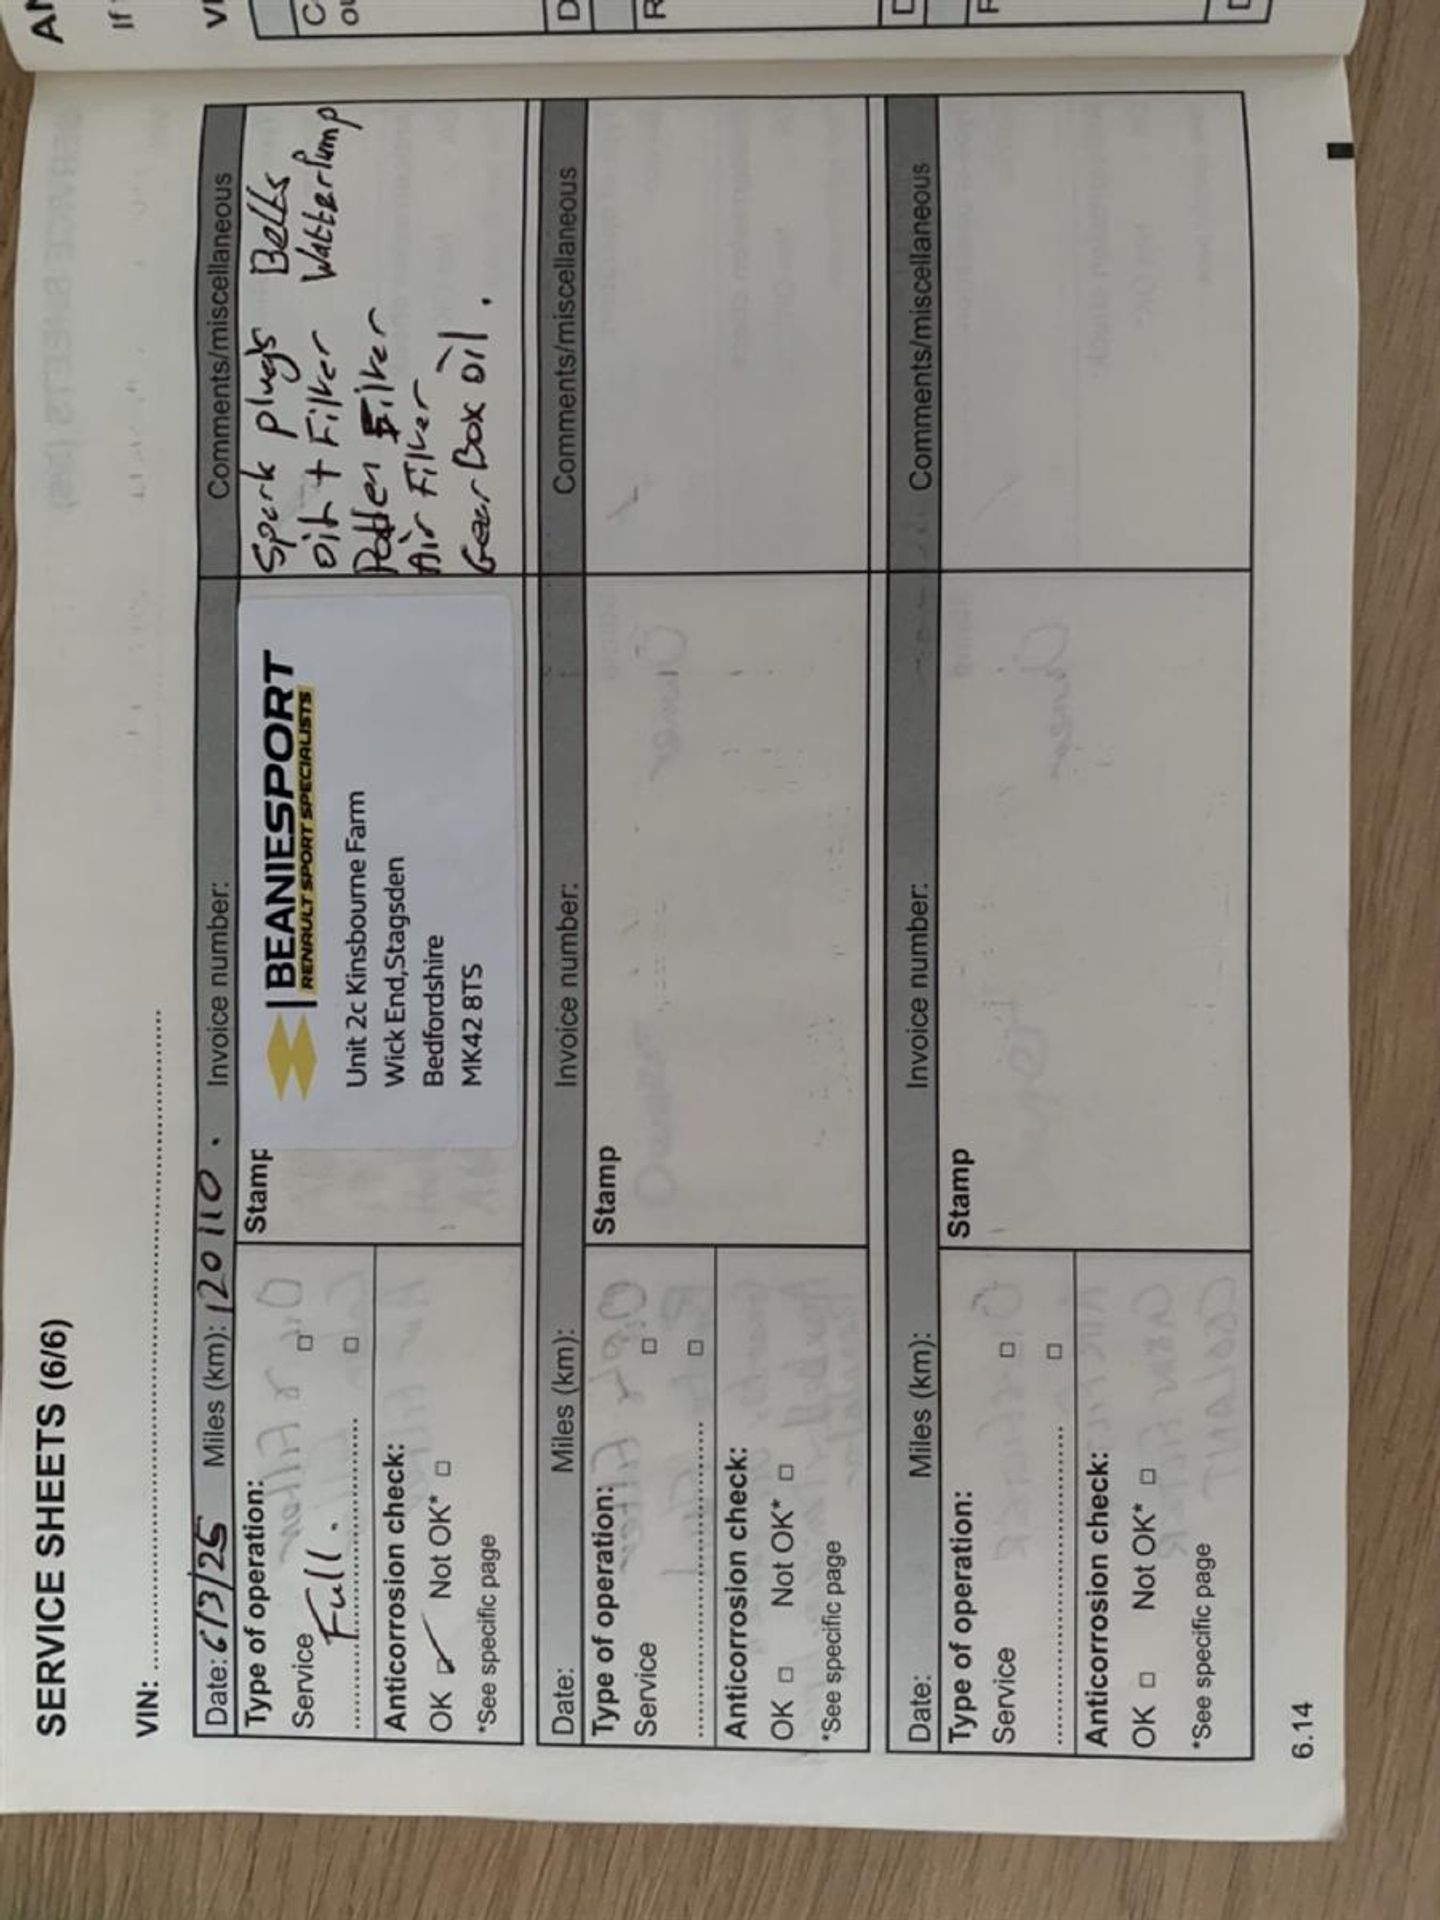 SERVICE SHEETS (6/6)
VIN:
Date: 6/3/25 Miles (km): 120 110. Invoice number: Comments/miscellaneous
Type of operation:
Service
Full.
Anticorrosion check:
OK Not OK*
*See specific page
Stamp
BEANIESPORT
RENAULT SPORT SPECIALISTS
Unit 2c Kinsbourne Farm
Wick End,Stagsden
Bedfordshire
MK42 8TS
Spark plugs Belts
Oil + Filter WatterPump
Pollen Filter
Air Filter
Gear Box Oil.
Date: Miles (km): Invoice number: Comments/miscellaneous
Type of operation:
Service
Anticorrosion check:
OK Not OK*
*See specific page
Stamp
Date: Miles (km): Invoice number: Comments/miscellaneous
Type of operation:
Service
Anticorrosion check:
OK Not OK*
*See specific page
Stamp
6.14